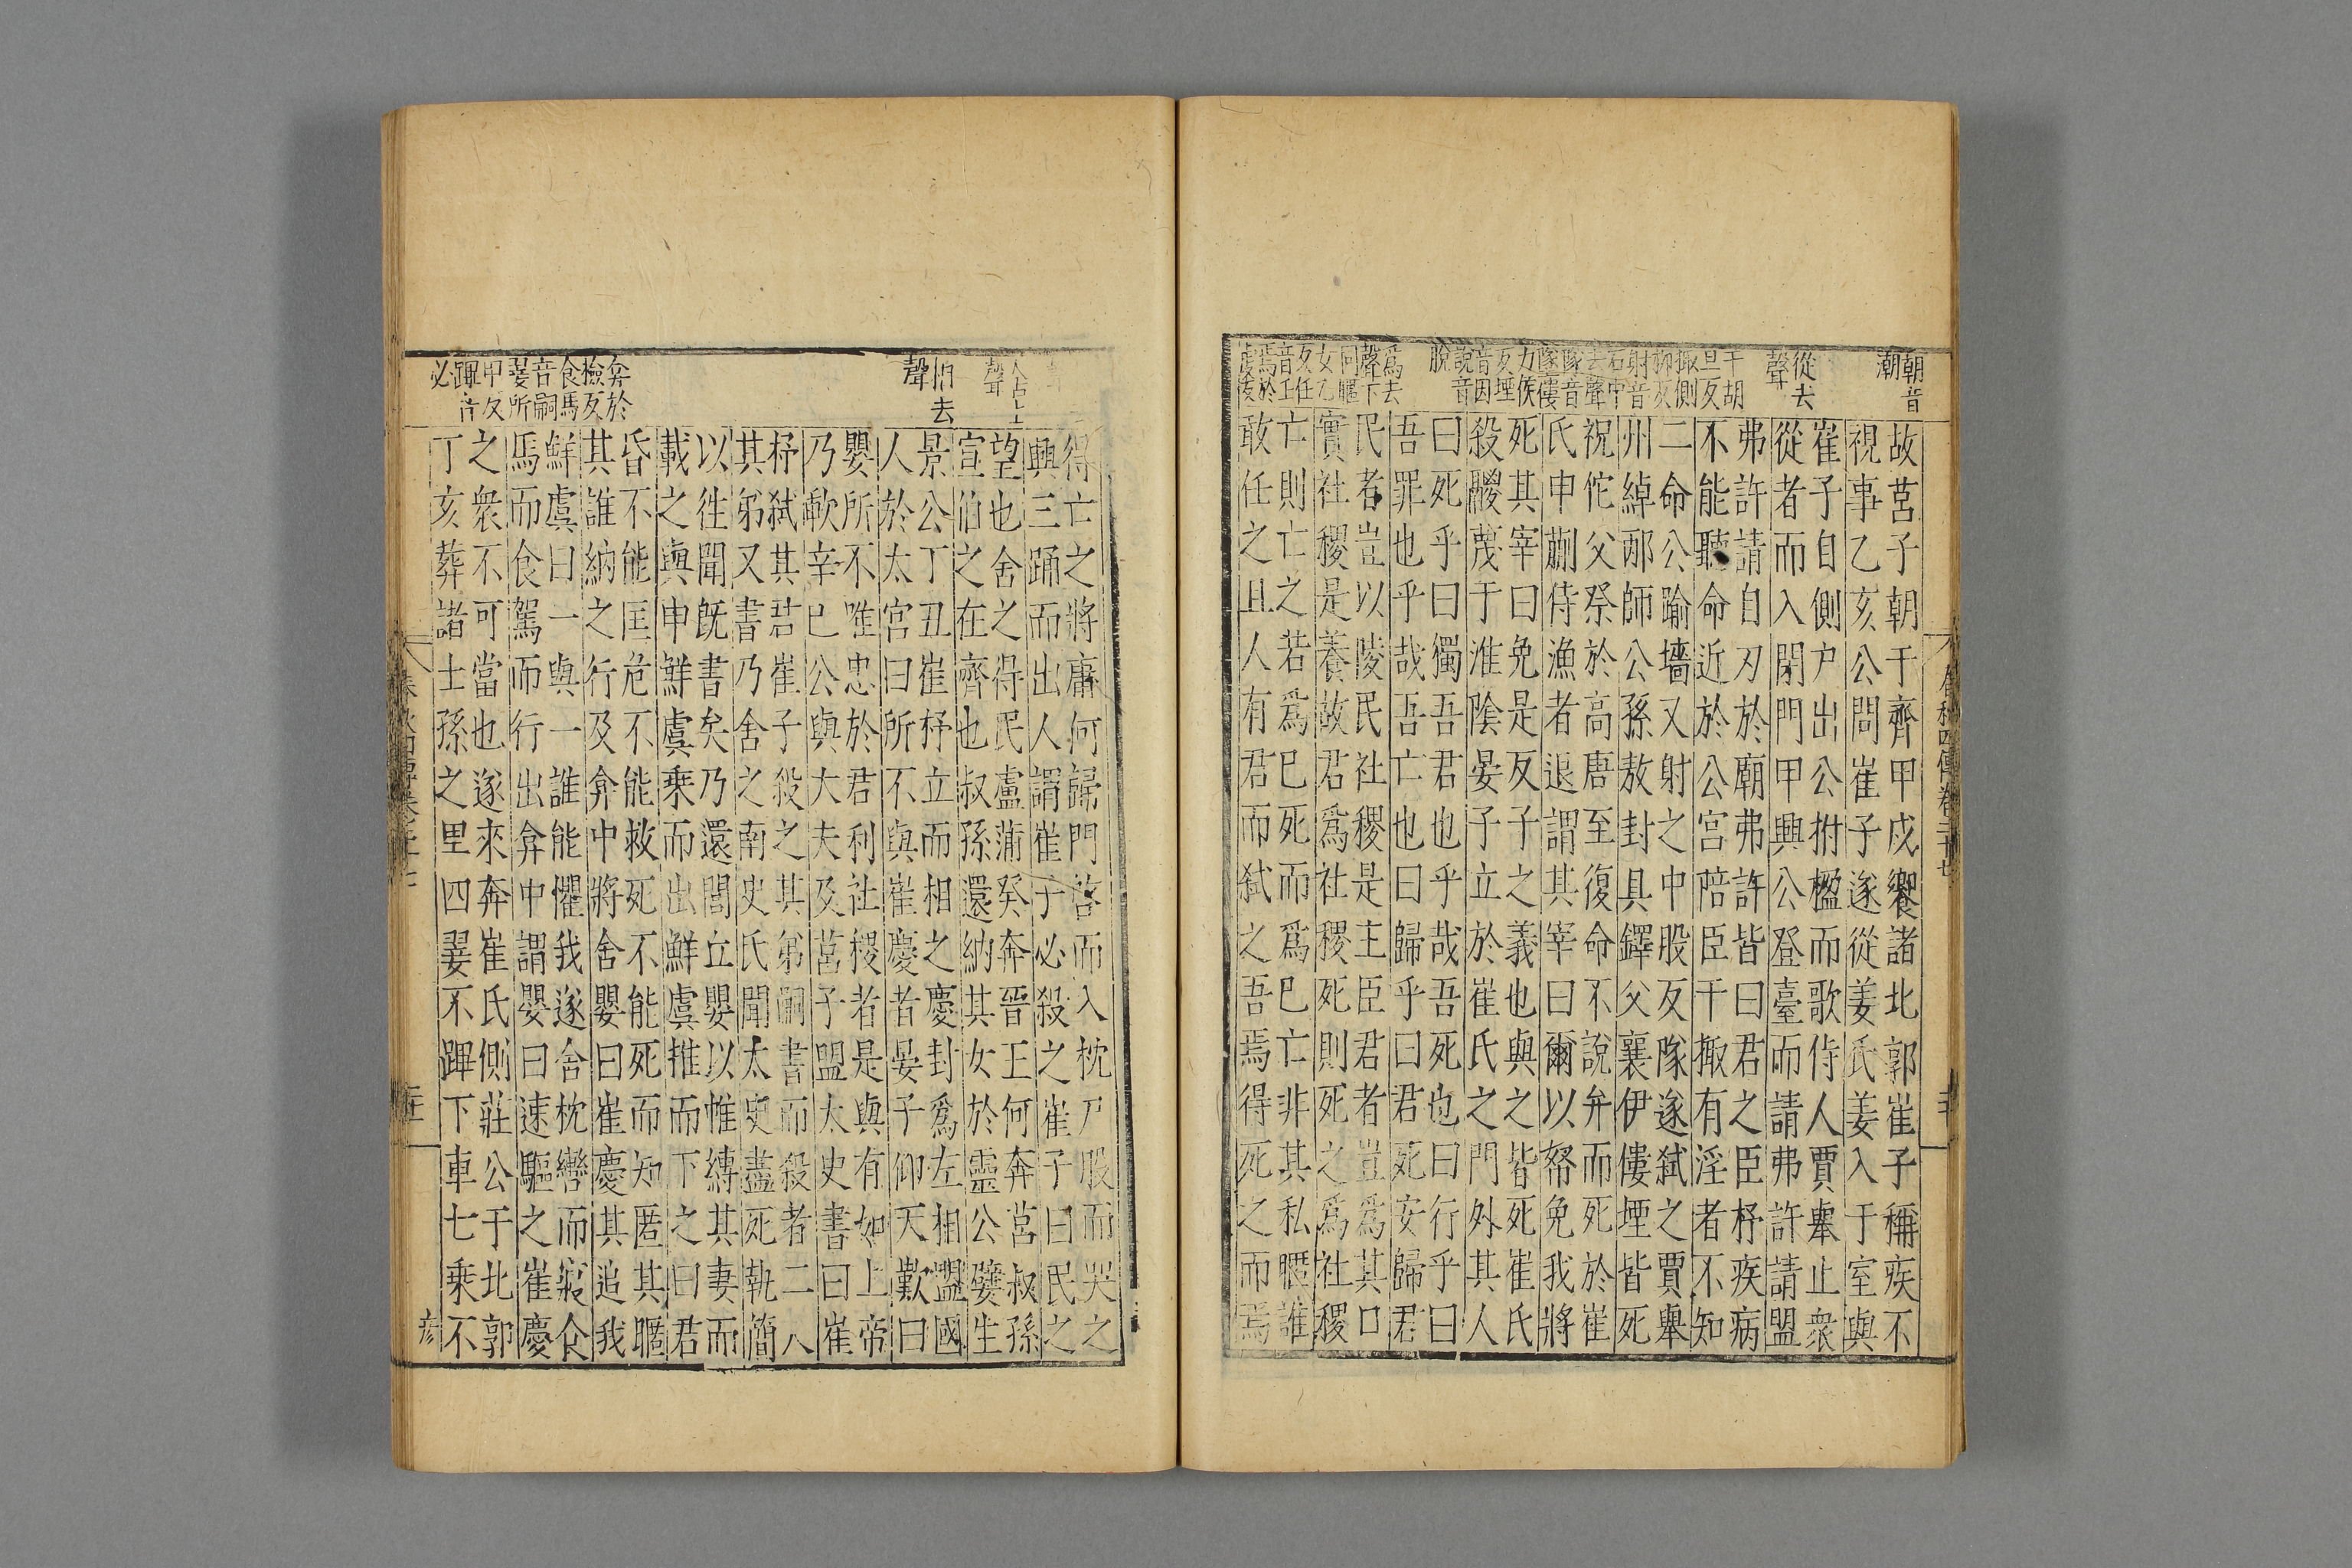 朝音
潮
從去
聲
干胡
旦反
掫側
柳反
射音
石中
去聲
隊音
墜僂
力侯
反堙
音因
說音
脫
爲去
聲下
同暱
女乙
反任
音壬
焉於
虔反
故莒子朝于齊甲戌饗諸北郭崔子稱疾不
視事乙亥公問崔子遂從姜氏姜入于室與
崔子自側户出公拊楹而歌侍人賈舉止衆
從者而入閉門甲興公登臺而請弗許請盟
弗許請自刃於廟弗許皆曰君之臣杼疾病
不能聽命近於公宮陪臣干掫有淫者不知
二命公踰墻又射之中股反隊遂弑之賈舉
州綽邴師公孫敖封具鐸父襄伊僂堙皆死
祝佗父祭於高唐至復命不說弁而死於崔
氏申蒯侍漁者退謂其宰曰爾以帑免我將
死其宰曰免是反子之義也與之皆死崔氏
殺鬷蔑于淮陰晏子立於崔氏之門外其人
曰死乎曰獨吾君也乎哉吾死也曰行乎曰
吾罪也乎哉吾亡也曰歸乎曰君死安歸君
民者豈以陵民社稷是主臣君者豈爲其口
實社稷是養故君爲社稷死則死之爲社稷
亡則亡之若爲已死而爲已亡非其私暱誰
敢任之且人有君而弑之吾焉得死之而焉
春秋四傳卷二十七
聲
相去
聲
弇於
檢反
食馬
音嗣
翣所
甲反
蹕音
必
得亡之將庸何歸門啓而入枕尸股而哭之
興三踊而出人謂崔子必殺之崔子曰民之
望也舍之得民盧蒲癸奔晉王何奔莒叔孫
宣伯之在齊也叔孫還納其女於靈公嬖生
景公丁丑崔杼立而相之慶封爲左相盟國
人於太宮曰所不與崔慶者晏子仰天歎曰
嬰所不唯忠於君利社稷者是與有如上帝
乃歃辛巳公與大夫及莒子盟太史書曰崔
杼弑其君崔子殺之其弟嗣書而殺者二人
其弟又書乃舍之南史氏聞太史盡死執簡
以徃聞旣書矣乃還閭丘嬰以帷縳其妻而
載之與申鮮虞乘而出鮮虞推而下之曰君
昏不能匡危不能救死不能死而知匿其暱
其誰納之行及弇中將舍嬰曰崔慶其追我
鮮虞曰一與一誰能懼我遂舍枕轡而寢食
馬而食駕而行出弇中謂嬰曰速驅之崔慶
之衆不可當也遂來奔崔氏側莊公于北郭
丁亥葬諸士孫之里四翣不蹕下車七乘不
春秋四傳卷二十七
彦